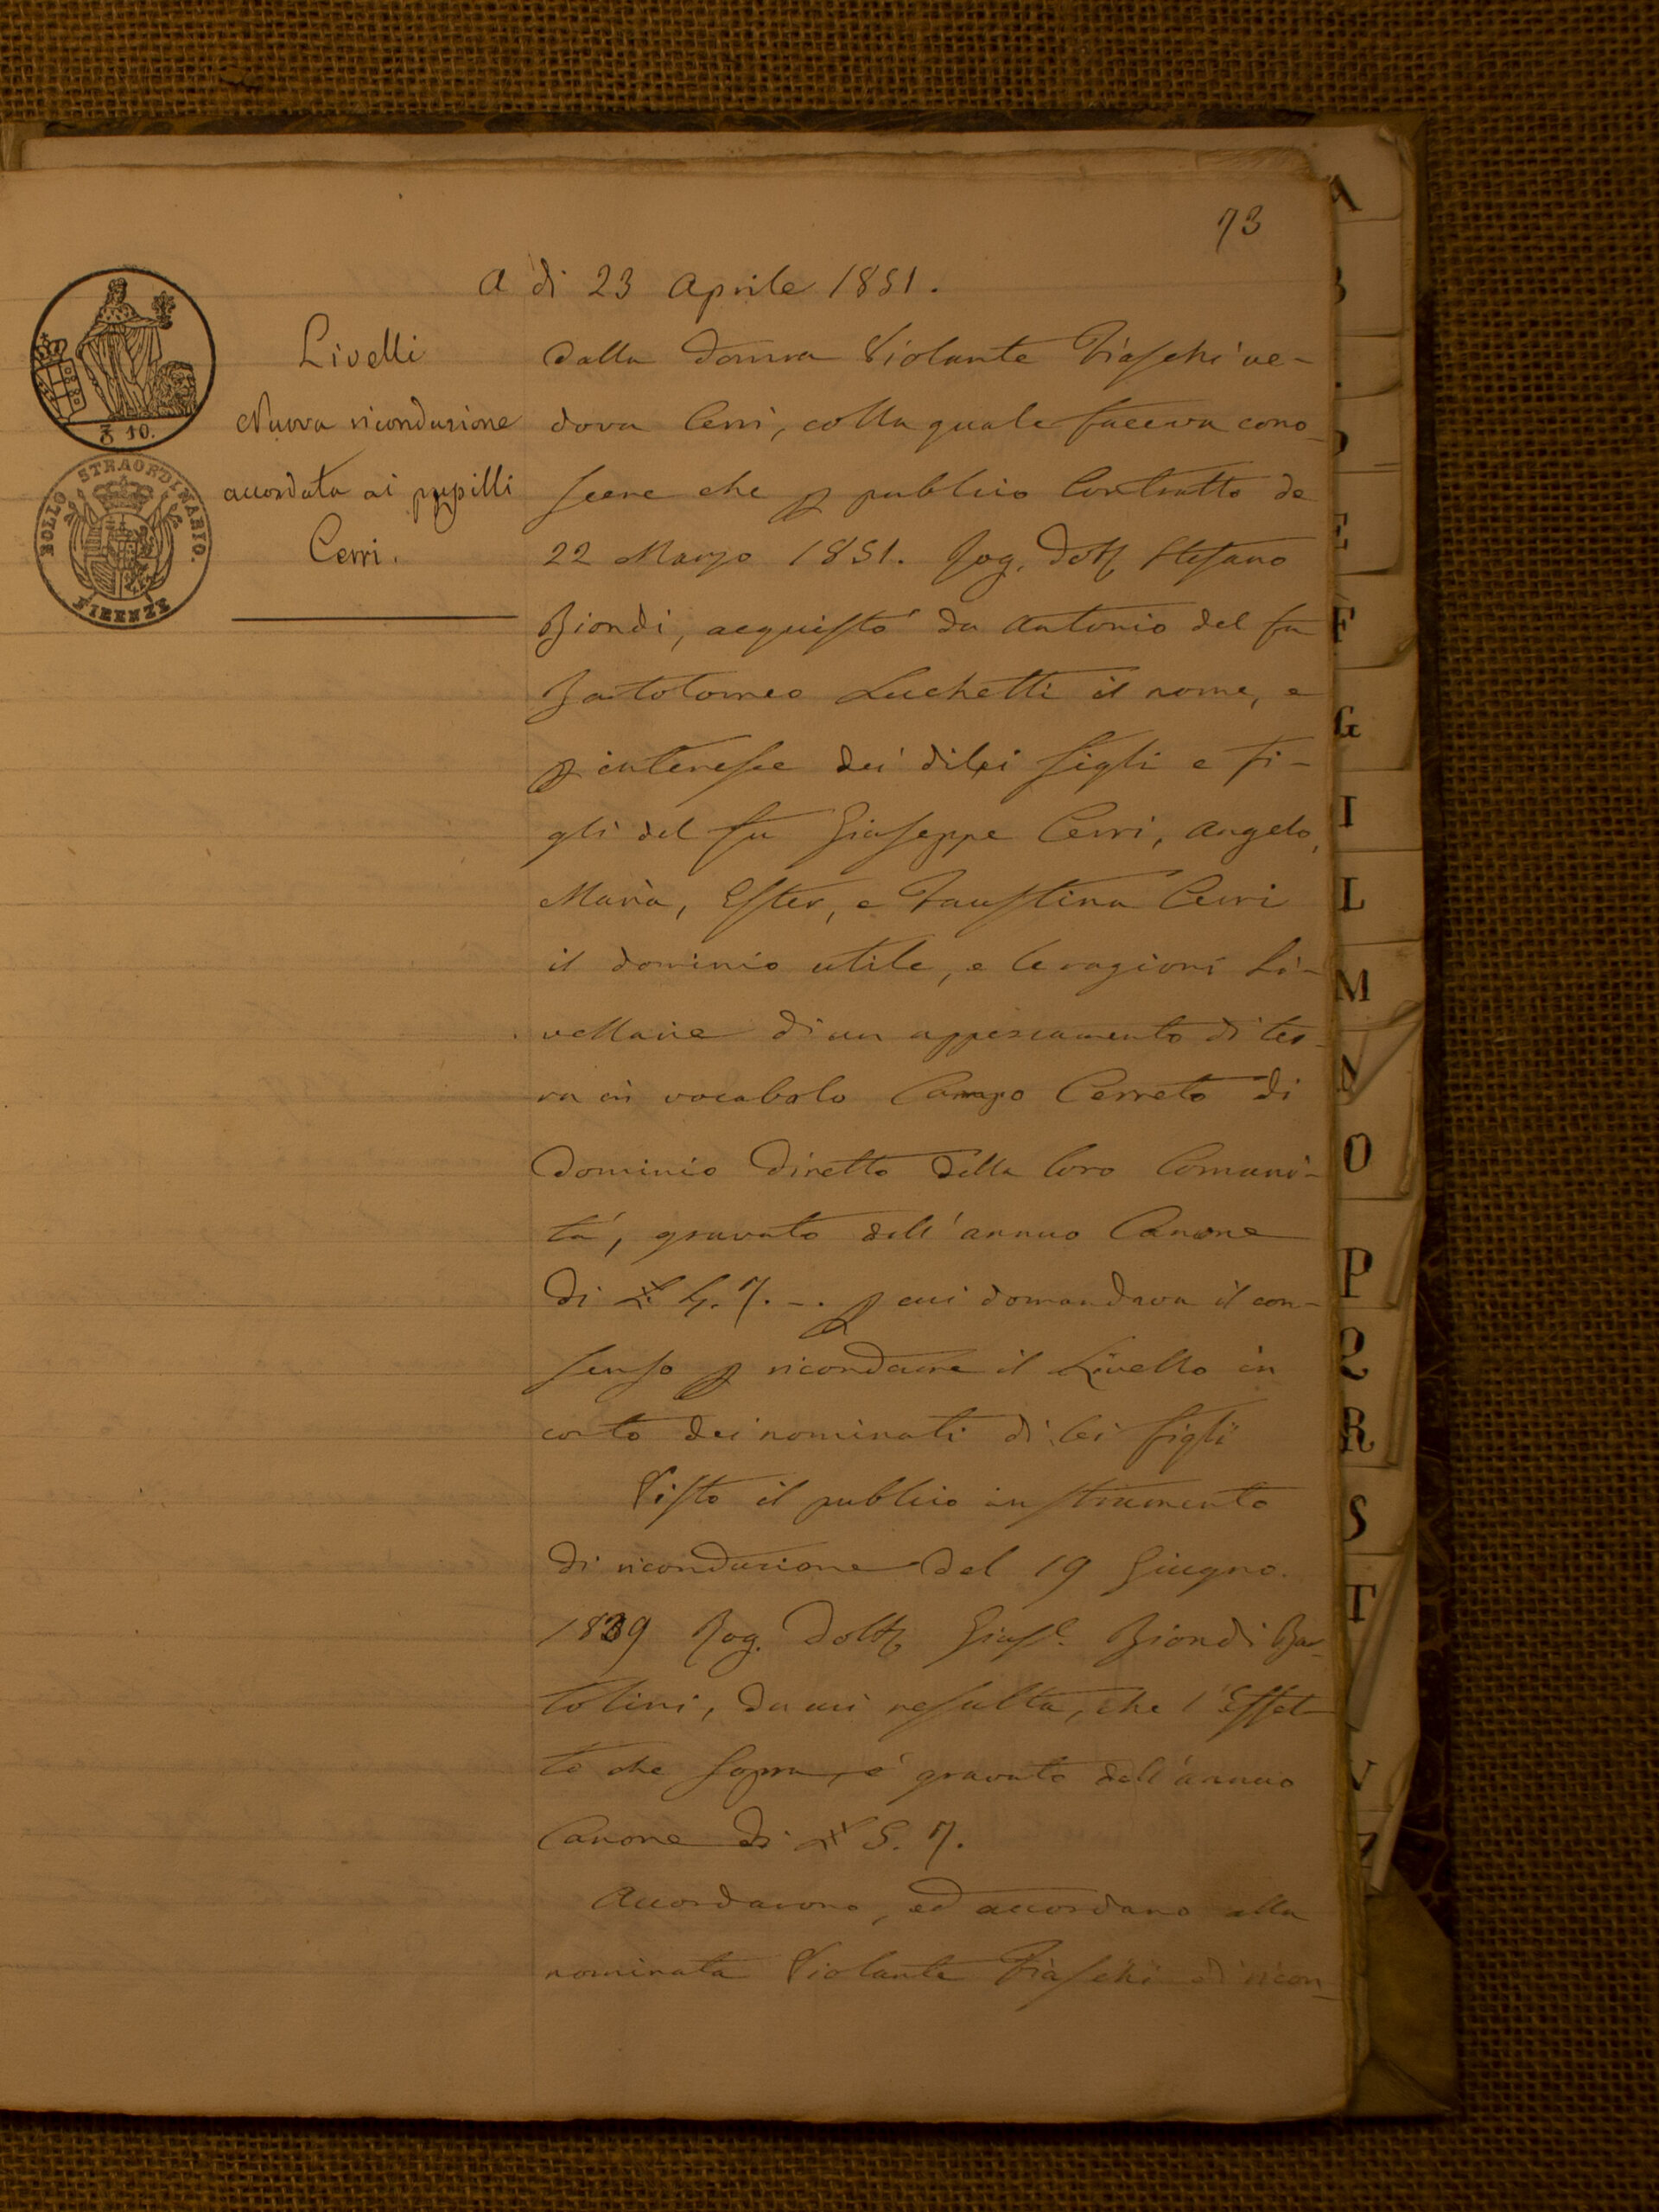 73
A di 23 Aprile 1851.
Livelli
Nuova riconduzione
accordata ai pupilli
Cerri.
₰ 10.
BOLLO STRAORDINARIO.
FIRENZE
dalla donna Violante Fiaschi ve-
dova Cerri, colla quale faceva cono-
scere che p publico Contratto de
22 Marzo 1851. Rog. Dott Stefano
Biondi, acquistò da Antonio del fu
Bartolomeo Luchetti il nome, e
p interesse dei dilei figli e fi-
gli del fu Giuseppe Cerri, Angelo,
Maria, Ester, e Faustina Cerri
il dominio utile, e le ragioni Li-
vellarie di un appezzamento di ter-
ra in vocabolo Campo Cerreto di
Dominio diretto della loro Comuni-
tá, gravato dell'annuo Canone
di £ 4. 7. -. p cui domandava il con-
senso p ricondurre il Livello in
conto dei nominati di lei figli
Visto il publico instrumento
di riconduzione del 19 Giugno.
1839 Rog. Dott Gius.e Biondi Bar-
tolini, da cui resulta, che l'Effet-
to che sopra, é gravato dell'annuo
Canone di £ 5. 7.
Accordarono, ed accordano alla
nominata Violante Fiaschi di ricon-
A
E
F
G
I
L
M
N
O
P
Q
R
S
T
V
Z